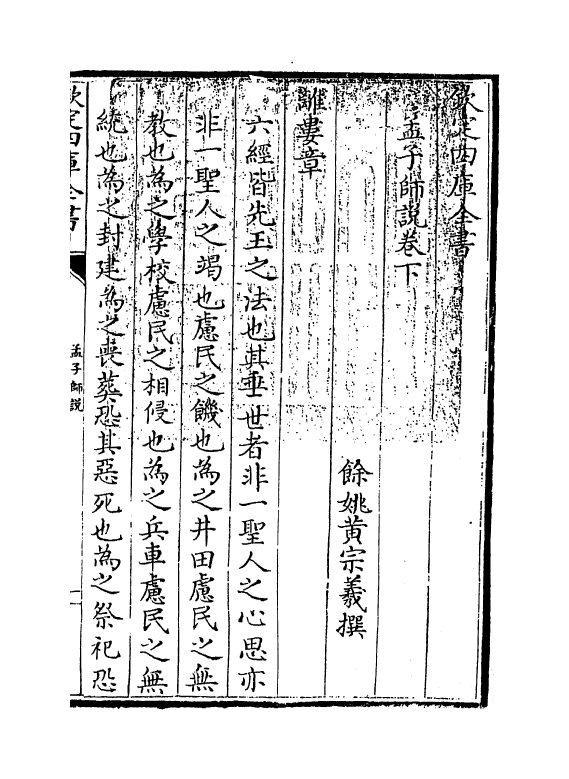 欽定四庫全書
孟子師說卷下
餘姚黃宗羲撰
離婁章
六經皆先王之法也其垂世者非一聖人之心思亦
非一聖人之竭也慮民之饑也為之井田慮民之無
教也為之學校慮民之相侵也為之兵車慮民之無
統也為之封建為之喪葬恐其惡死也為之祭祀恐
欽定四庫全書
孟子師說
一